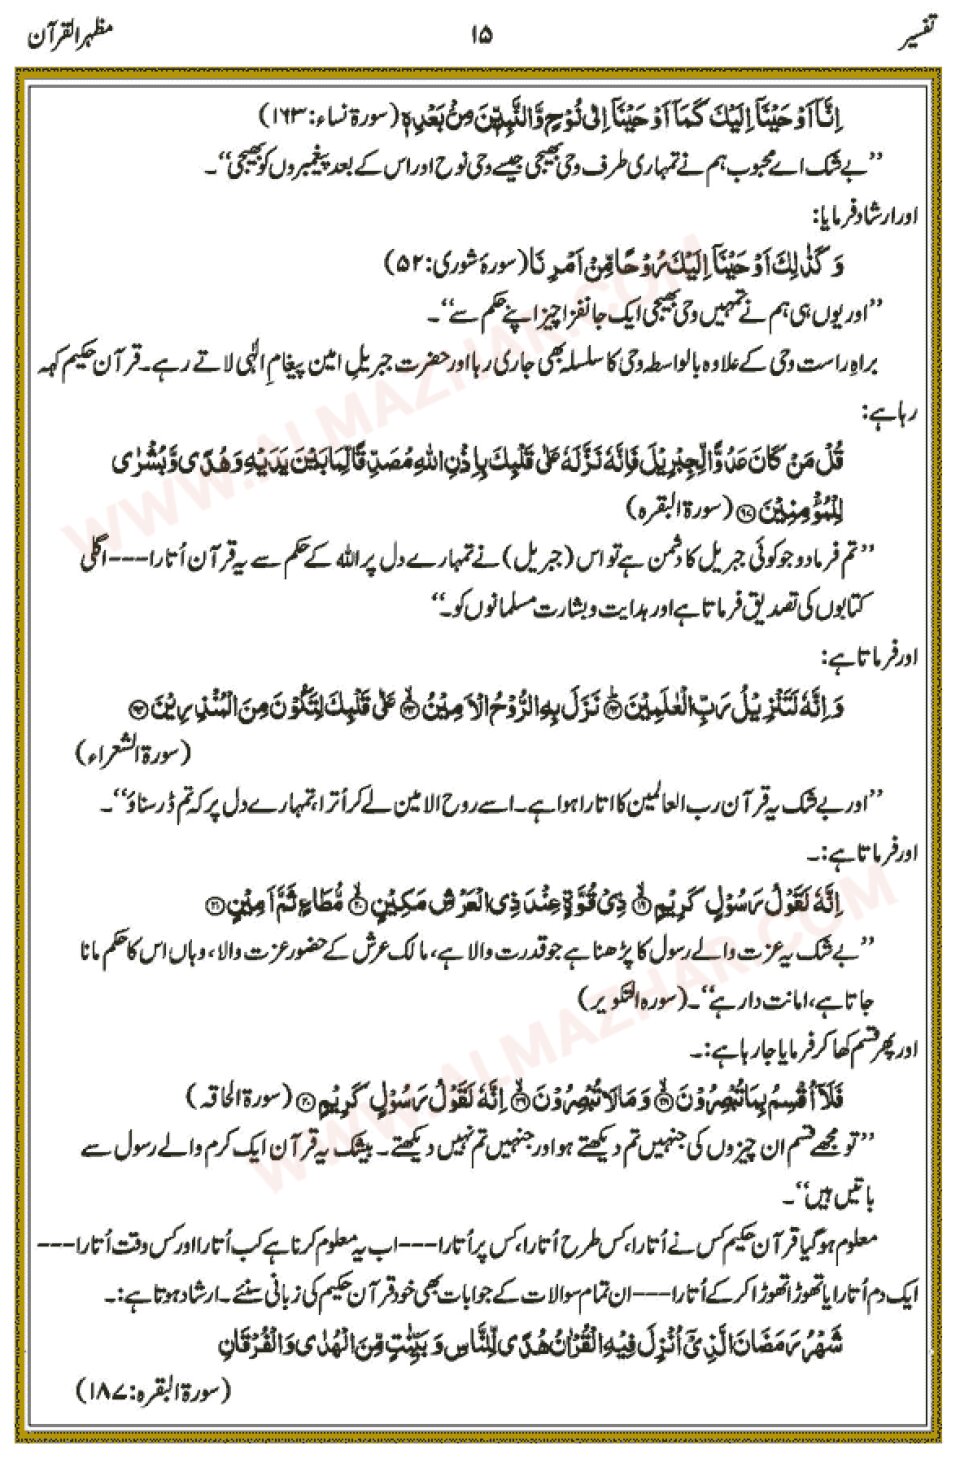 تفسیر ۱۵ مظہرالقرآن
اِنَّاۤ اَوْحَیْنَاۤ اِلَیْكَ كَمَاۤ اَوْحَیْنَاۤ اِلٰی نُوْحٍ وَّالنَّبِیّٖنَ مِنْۢ بَعْدِهٖ (سورۃ نساء:۱۶۳)
’’بے شک اے محبوب ہم نے تمہاری طرف وحی بھیجی جیسے وحی نوح اور اس کے بعد پیغمبروں کو بھیجی‘‘۔
اور ارشاد فرمایا:
وَ كَذٰلِكَ اَوْحَیْنَاۤ اِلَیْكَ رُوْحًا مِّنْ اَمْرِنَا (سورۂ شوری:۵۲)
’’اور یوں ہی ہم نے تمہیں وحی بھیجی ایک جانفزا چیز اپنے حکم سے‘‘۔
براہِ راست وحی کے علاوہ بالواسطہ وحی کا سلسلہ بھی جاری رہا اور حضرت جبریلِ امین پیغامِ الٰہی لاتے رہے۔ قرآن حکیم کہہ
رہا ہے:
قُلْ مَنْ كَانَ عَدُوًّا لِّجِبْرِیْلَ فَاِنَّهٗ نَزَّلَهٗ عَلٰی قَلْبِكَ بِاِذْنِ اللّٰهِ مُصَدِّقًا لِّمَا بَیْنَ یَدَیْهِ وَ هُدًی وَّ بُشْرٰی
لِلْمُؤْمِنِیْنَ ۹۷ (سورۃ البقرہ)
’’تم فرما دو جو کوئی جبریل کا دشمن ہے تو اس (جبریل) نے تمہارے دل پر اللہ کے حکم سے یہ قرآن اُتارا---اگلی
کتابوں کی تصدیق فرماتا ہے اور ہدایت و بشارت مسلمانوں کو۔‘‘
اور فرماتا ہے:
وَ اِنَّهٗ لَتَنْزِیْلُ رَبِّ الْعٰلَمِیْنَ ۱۹۲ نَزَلَ بِهِ الرُّوْحُ الْاَمِیْنُ ۱۹۳ عَلٰی قَلْبِكَ لِتَكُوْنَ مِنَ الْمُنْذِرِیْنَ ۱۹۴
(سورۃ الشعراء)
’’اور بے شک یہ قرآن رب العالمین کا اتارا ہوا ہے۔ اسے روح الامین لے کر اُترا، تمہارے دل پر کہ تم ڈر سناؤ‘‘۔
اور فرماتا ہے:۔
اِنَّهٗ لَقَوْلُ رَسُوْلٍ كَرِیْمٍ ۱۹ ذِیْ قُوَّةٍ عِنْدَ ذِی الْعَرْشِ مَكِیْنٍ ۲۰ مُّطَاعٍ ثَمَّ اَمِیْنٍ ۲۱
’’بے شک یہ عزت والے رسول کا پڑھنا ہے جو قدرت والا ہے، مالک عرش کے حضور عزت والا، وہاں اس کا حکم مانا
جاتا ہے، امانت دار ہے‘‘۔ (سورہ التکویر)
اور پھر قسم کھا کر فرمایا جا رہا ہے:۔
فَلَاۤ اُقْسِمُ بِمَا تُبْصِرُوْنَ ۳۸ وَ مَا لَا تُبْصِرُوْنَ ۳۹ اِنَّهٗ لَقَوْلُ رَسُوْلٍ كَرِیْمٍ ۴۰ (سورۃ الحاقہ)
’’تو مجھے قسم ان چیزوں کی جنہیں تم دیکھتے ہو اور جنہیں تم نہیں دیکھتے۔ بیشک یہ قرآن ایک کرم والے رسول سے
باتیں ہیں‘‘۔
معلوم ہو گیا قرآن حکیم کس نے اُتارا، کس طرح اُتارا، کس پر اُتارا---اب یہ معلوم کرنا ہے کب اُتارا اور کس وقت اُتارا---
ایک دم اُتارا یا تھوڑا تھوڑا کر کے اُتارا---ان تمام سوالات کے جوابات بھی خود قرآن حکیم کی زبانی سنئے۔ ارشاد ہوتا ہے:۔
شَهْرُ رَمَضَانَ الَّذِیْۤ اُنْزِلَ فِیْهِ الْقُرْاٰنُ هُدًی لِّلنَّاسِ وَ بَیِّنٰتٍ مِّنَ الْهُدٰی وَالْفُرْقَانِ
(سورۃ البقرہ:۱۸۷)
WWW.ALMAZHAR.COM
WWW.ALMAZHAR.COM